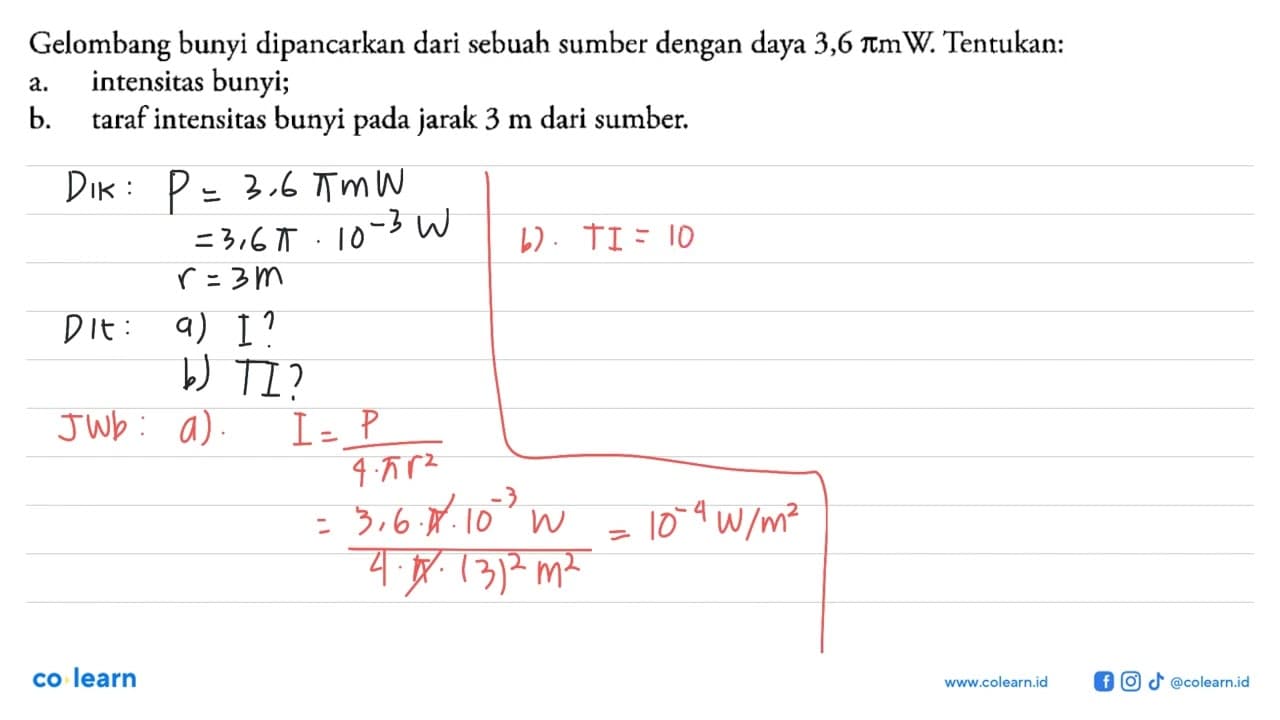 Gelombang bunyi dipancarkan dari sebuah sumber dengan daya 3,6 πmW. Tentukan:
a. intensitas bunyi;
b. taraf intensitas bunyi pada jarak 3 m dari sumber.
Dik: P = 3,6 πmW
= 3,6 π . 10⁻³ W
r = 3m
Dit: a) I?
b) TI?
Jwb: a). I = P / 4.πr²
= 3,6.π.10⁻³ W / 4.π.(3)² m² = 10⁻⁴ W/m²
b). TI = 10
co learn
www.colearn.id
@colearn.id